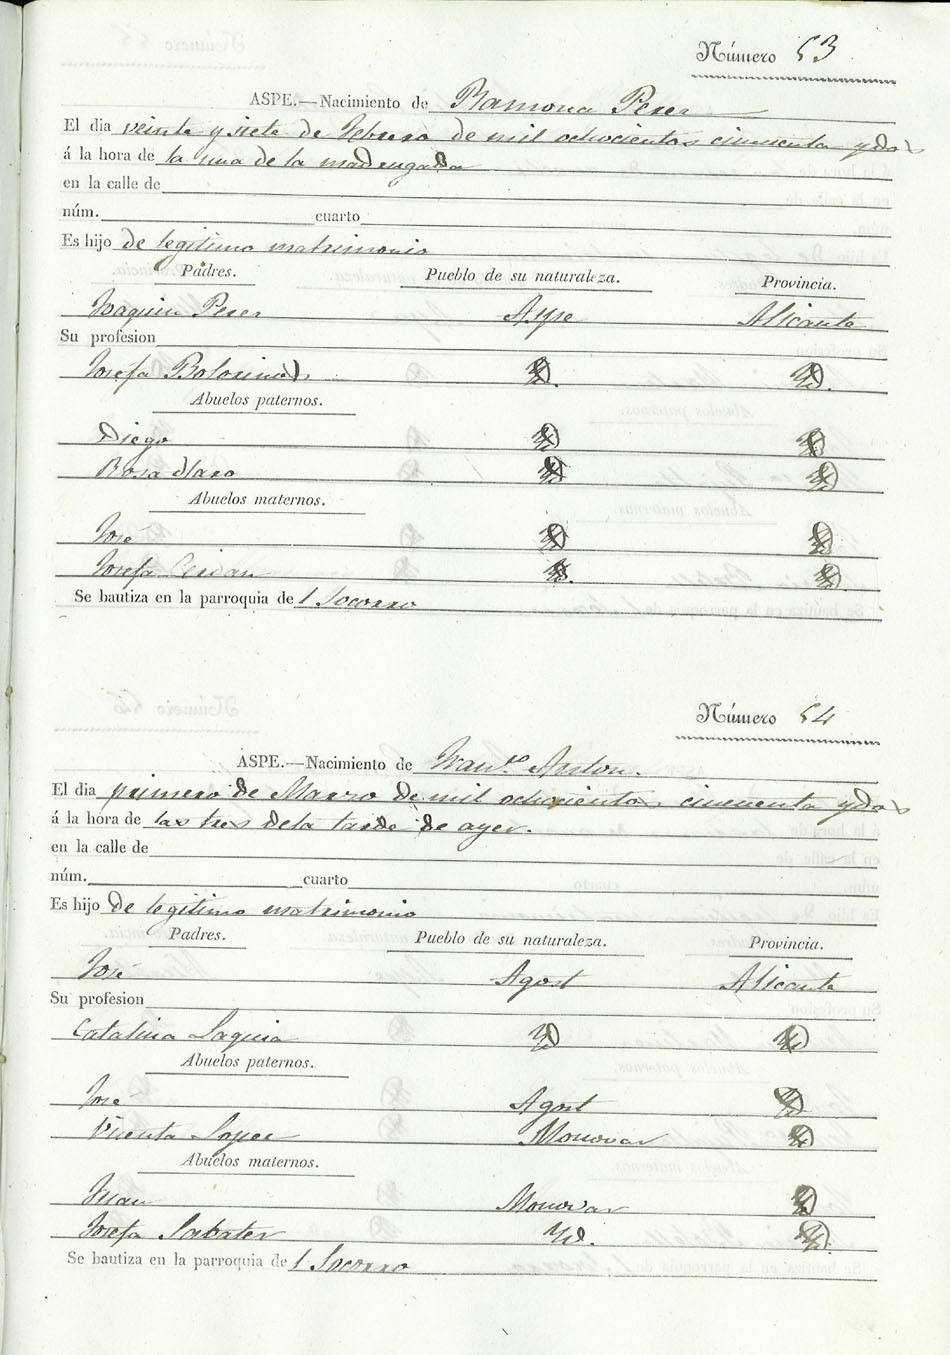 Número 53
ASPE.—Nacimiento de Ramona Perez
El dia veinte y siete de Febrero de mil ochocientos cincuenta y dos
á la hora de la una de la madrugada
en la calle de
núm. cuarto
Es hijo de legitimo matrimonio
Padres. Pueblo de su naturaleza. Provincia.
Joaquin Perez Aspe Alicante
Su profesion
Josefa Id. Id.
Abuelos paternos.
Diego Id. Id.
Rosa Id. Id.
Abuelos maternos.
José Id. Id.
Josefa Cerdan Id. Id.
Se bautiza en la parroquia de l Socorro
Número 54
ASPE.—Nacimiento de Franco. Anton.
El dia primero de Marzo de mil ochocientos cincuenta y dos
á la hora de las tres dela tarde de ayer.
en la calle de
núm. cuarto
Es hijo de legitimo matrimonio
Padres. Pueblo de su naturaleza. Provincia.
José Agost Alicante
Su profesion
Catalina Id Id
Abuelos paternos.
José Agost Id
Vicenta Lopez Monovar Id
Abuelos maternos.
Juan Monovar Id
Josefa Sabater Id. Id.
Se bautiza en la parroquia de l Socorro